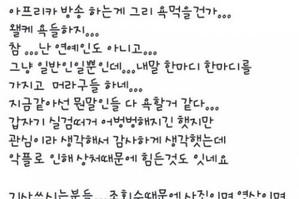 아프리카 방송 하는게 그리 욕먹을건가,,,
왤케 욕들하지,,,
참 ,,,난 연예인도 아니고,,,
그냥 일반인일뿐인데,,,내말 한마디 한마디를
가지고 머라구들 하네,,,
지금같아선 뭔말인들 다 욕할거 같다,,,
갑자기 실검떠거 어벙벙해지긴 햇지만
관심이라 생각해서 감사하게 생각했는데
악플로 인해 상처때문에 힘든것도 잇네요
기사쓰시는분들,,,조회수때문에 사진이며 영상이며